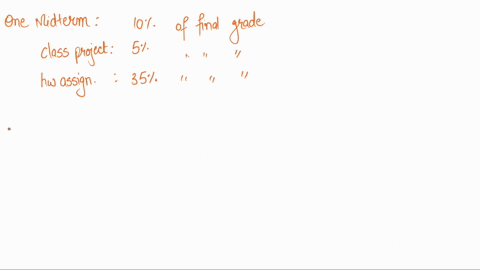 One Midterm : 10% of final grade
class project : 5% " " "
hw assign. : 35% " " "